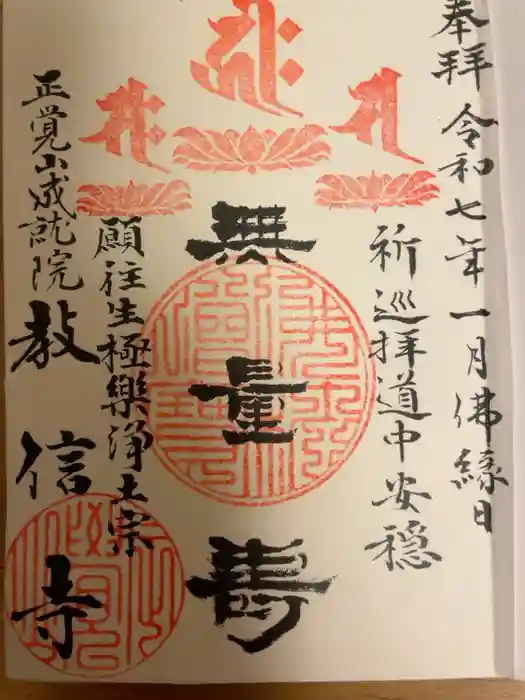 奉拝 令和七年一月佛縁日
祈巡拝道中安穏
無量壽
願往生極樂浄土宗
正覚山成就院教信寺